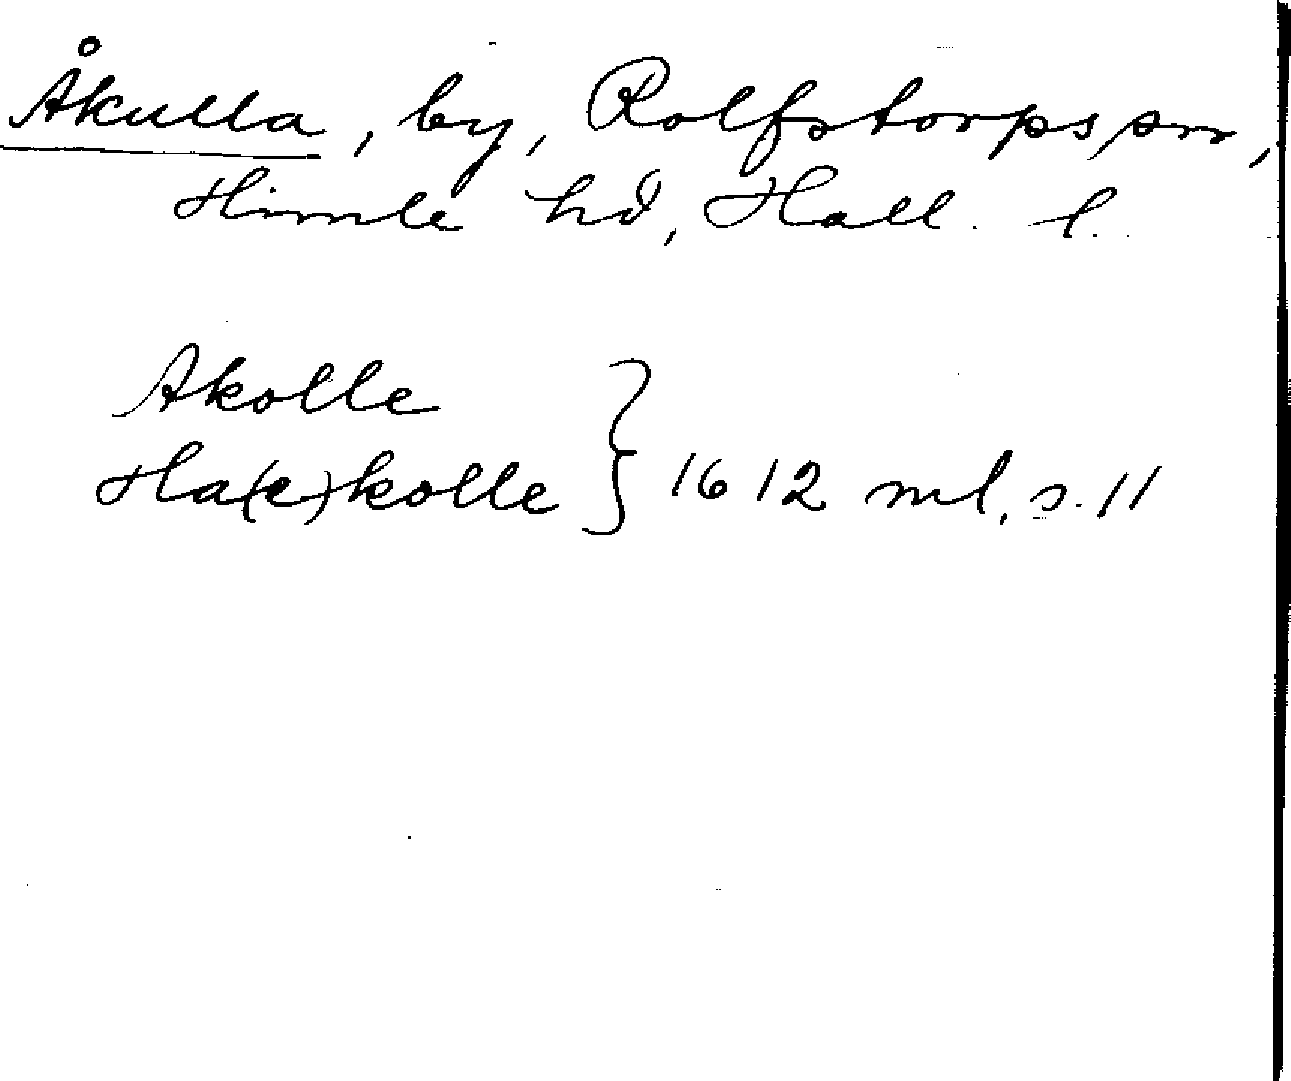 Åkulla, by, Rolfstorps sn,
Himle hd, Hall. l.
Akolle
Ha(c)kolle } 1612 ml, s. 11